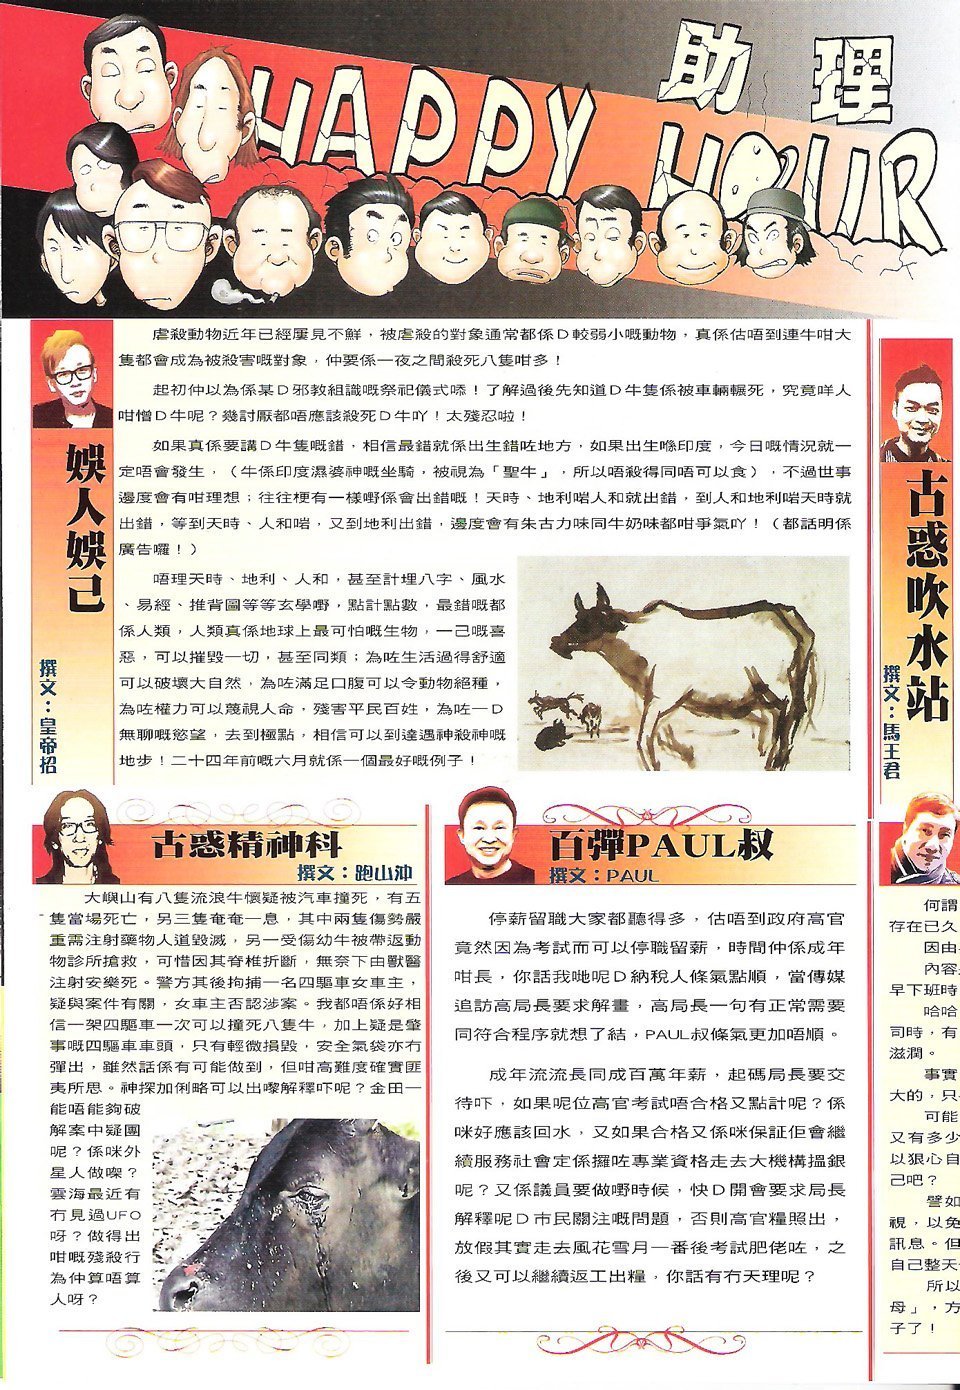 助理
HAPPY HOUR
娛人娛己
撰文：皇帝招
虐殺動物近年已經屢見不鮮，被虐殺的對象通常都係Ｄ較弱小嘅動物，真係估唔到連牛咁大
隻都會成為被殺害嘅對象，仲要係一夜之間殺死八隻咁多！
起初仲以為係某Ｄ邪教組識嘅祭祀儀式喺！了解過後先知道Ｄ牛隻係被車輛輾死，究竟咩人
咁憎Ｄ牛呢？幾討厭都唔應該殺死Ｄ牛吖！太殘忍啦！
如果真係要講Ｄ牛隻嘅錯，相信最錯就係出生錯咗地方，如果出生喺印度，今日嘅情況就一
定唔會發生，（牛係印度濕婆神嘅坐騎，被視為「聖牛」，所以唔殺得同唔可以食），不過世事
邊度會有咁理想；往往梗有一樣嘢係會出錯嘅！天時、地利啱人和就出錯，到人和地利啱天時就
出錯，等到天時、人和啱，又到地利出錯，邊度會有朱古力味同牛奶味都咁爭氣吖！（都話明係
廣告囉！）
唔理天時、地利、人和，甚至計埋八字、風水
、易經、推背圖等等玄學嘢，點計點數，最錯嘅都
係人類，人類真係地球上最可怕嘅生物，一己嘅喜
惡，可以摧毀一切，甚至同類；為咗生活過得舒適
可以破壞大自然，為咗滿足口腹可以令動物絕種，
為咗權力可以蔑視人命，殘害平民百姓，為咗一Ｄ
無聊嘅慾望，去到極點，相信可以到達遇神殺神嘅
地步！二十四年前嘅六月就係一個最好嘅例子！
古惑吹水站
撰文：馬王君
古惑精神科
撰文：跑山沖
大嶼山有八隻流浪牛懷疑被汽車撞死，有五
隻當場死亡，另三隻奄奄一息，其中兩隻傷勢嚴
重需注射藥物人道毀滅，另一受傷幼牛被帶返動
物診所搶救，可惜因其脊椎折斷，無奈下由獸醫
注射安樂死。警方其後拘捕一名四驅車女車主，
疑與案件有關，女車主否認涉案。我都唔係好相
信一架四驅車一次可以撞死八隻牛，加上疑是肇
事嘅四驅車車頭，只有輕微損毀，安全氣袋亦冇
彈出，雖然話係有可能做到，但咁高難度確實匪
夷所思。神探加俐略可以出嚟解釋吓呢？金田一
能唔能夠破
解案中疑團
呢？係咪外
星人做㗎？
雲海最近有
冇見過UFO
呀？做得出
咁嘅殘殺行
為仲算唔算
人呀？
百彈PAUL叔
撰文：PAUL
停薪留職大家都聽得多，估唔到政府高官
竟然因為考試而可以停職留薪，時間仲係成年
咁長，你話我哋呢Ｄ納稅人條氣點順，當傳媒
追訪高局長要求解畫，高局長一句有正常需要
同符合程序就想了結，PAUL叔條氣更加唔順。
成年流流長同成百萬年薪，起碼局長要交
待吓，如果呢位高官考試唔合格又點計呢？係
咪好應該回水，又如果合格又係咪保証佢會繼
續服務社會定係攞咗專業資格走去大機構搵銀
呢？又係議員要做嘢時候，快Ｄ開會要求局長
解釋呢Ｄ市民關注嘅問題，否則高官糧照出，
放假其實走去風花雪月一番後考試肥佬咗，之
後又可以繼續返工出糧，你話有冇天理呢？
何謂
存在已久
因由
內容
早下班時
哈哈
司時，有
滋潤。
事實
大的，只
可能
又有多少
以狠心自
己吧？
譬如
視，以免
訊息。但
自己整天
所以
母」，方
子了！